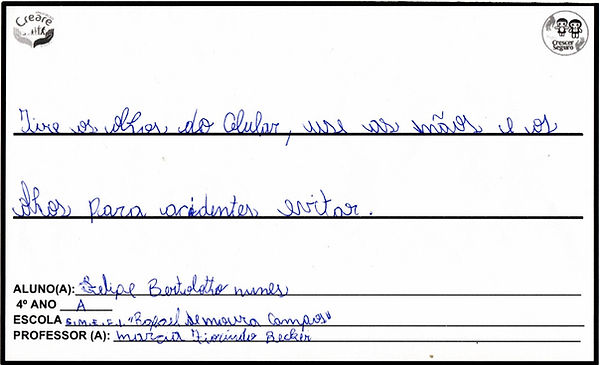 Creare
Crescer
Seguro
Tire os olhos do Celular, use as mãos e os
olhos para acidentes evitar.
ALUNO(A): Felipe Bertolotto nunes
4º ANO A
ESCOLA E.M.E.F.I. "Rafael de moura Campos"
PROFESSOR (A): marcia Fiorindo Becker